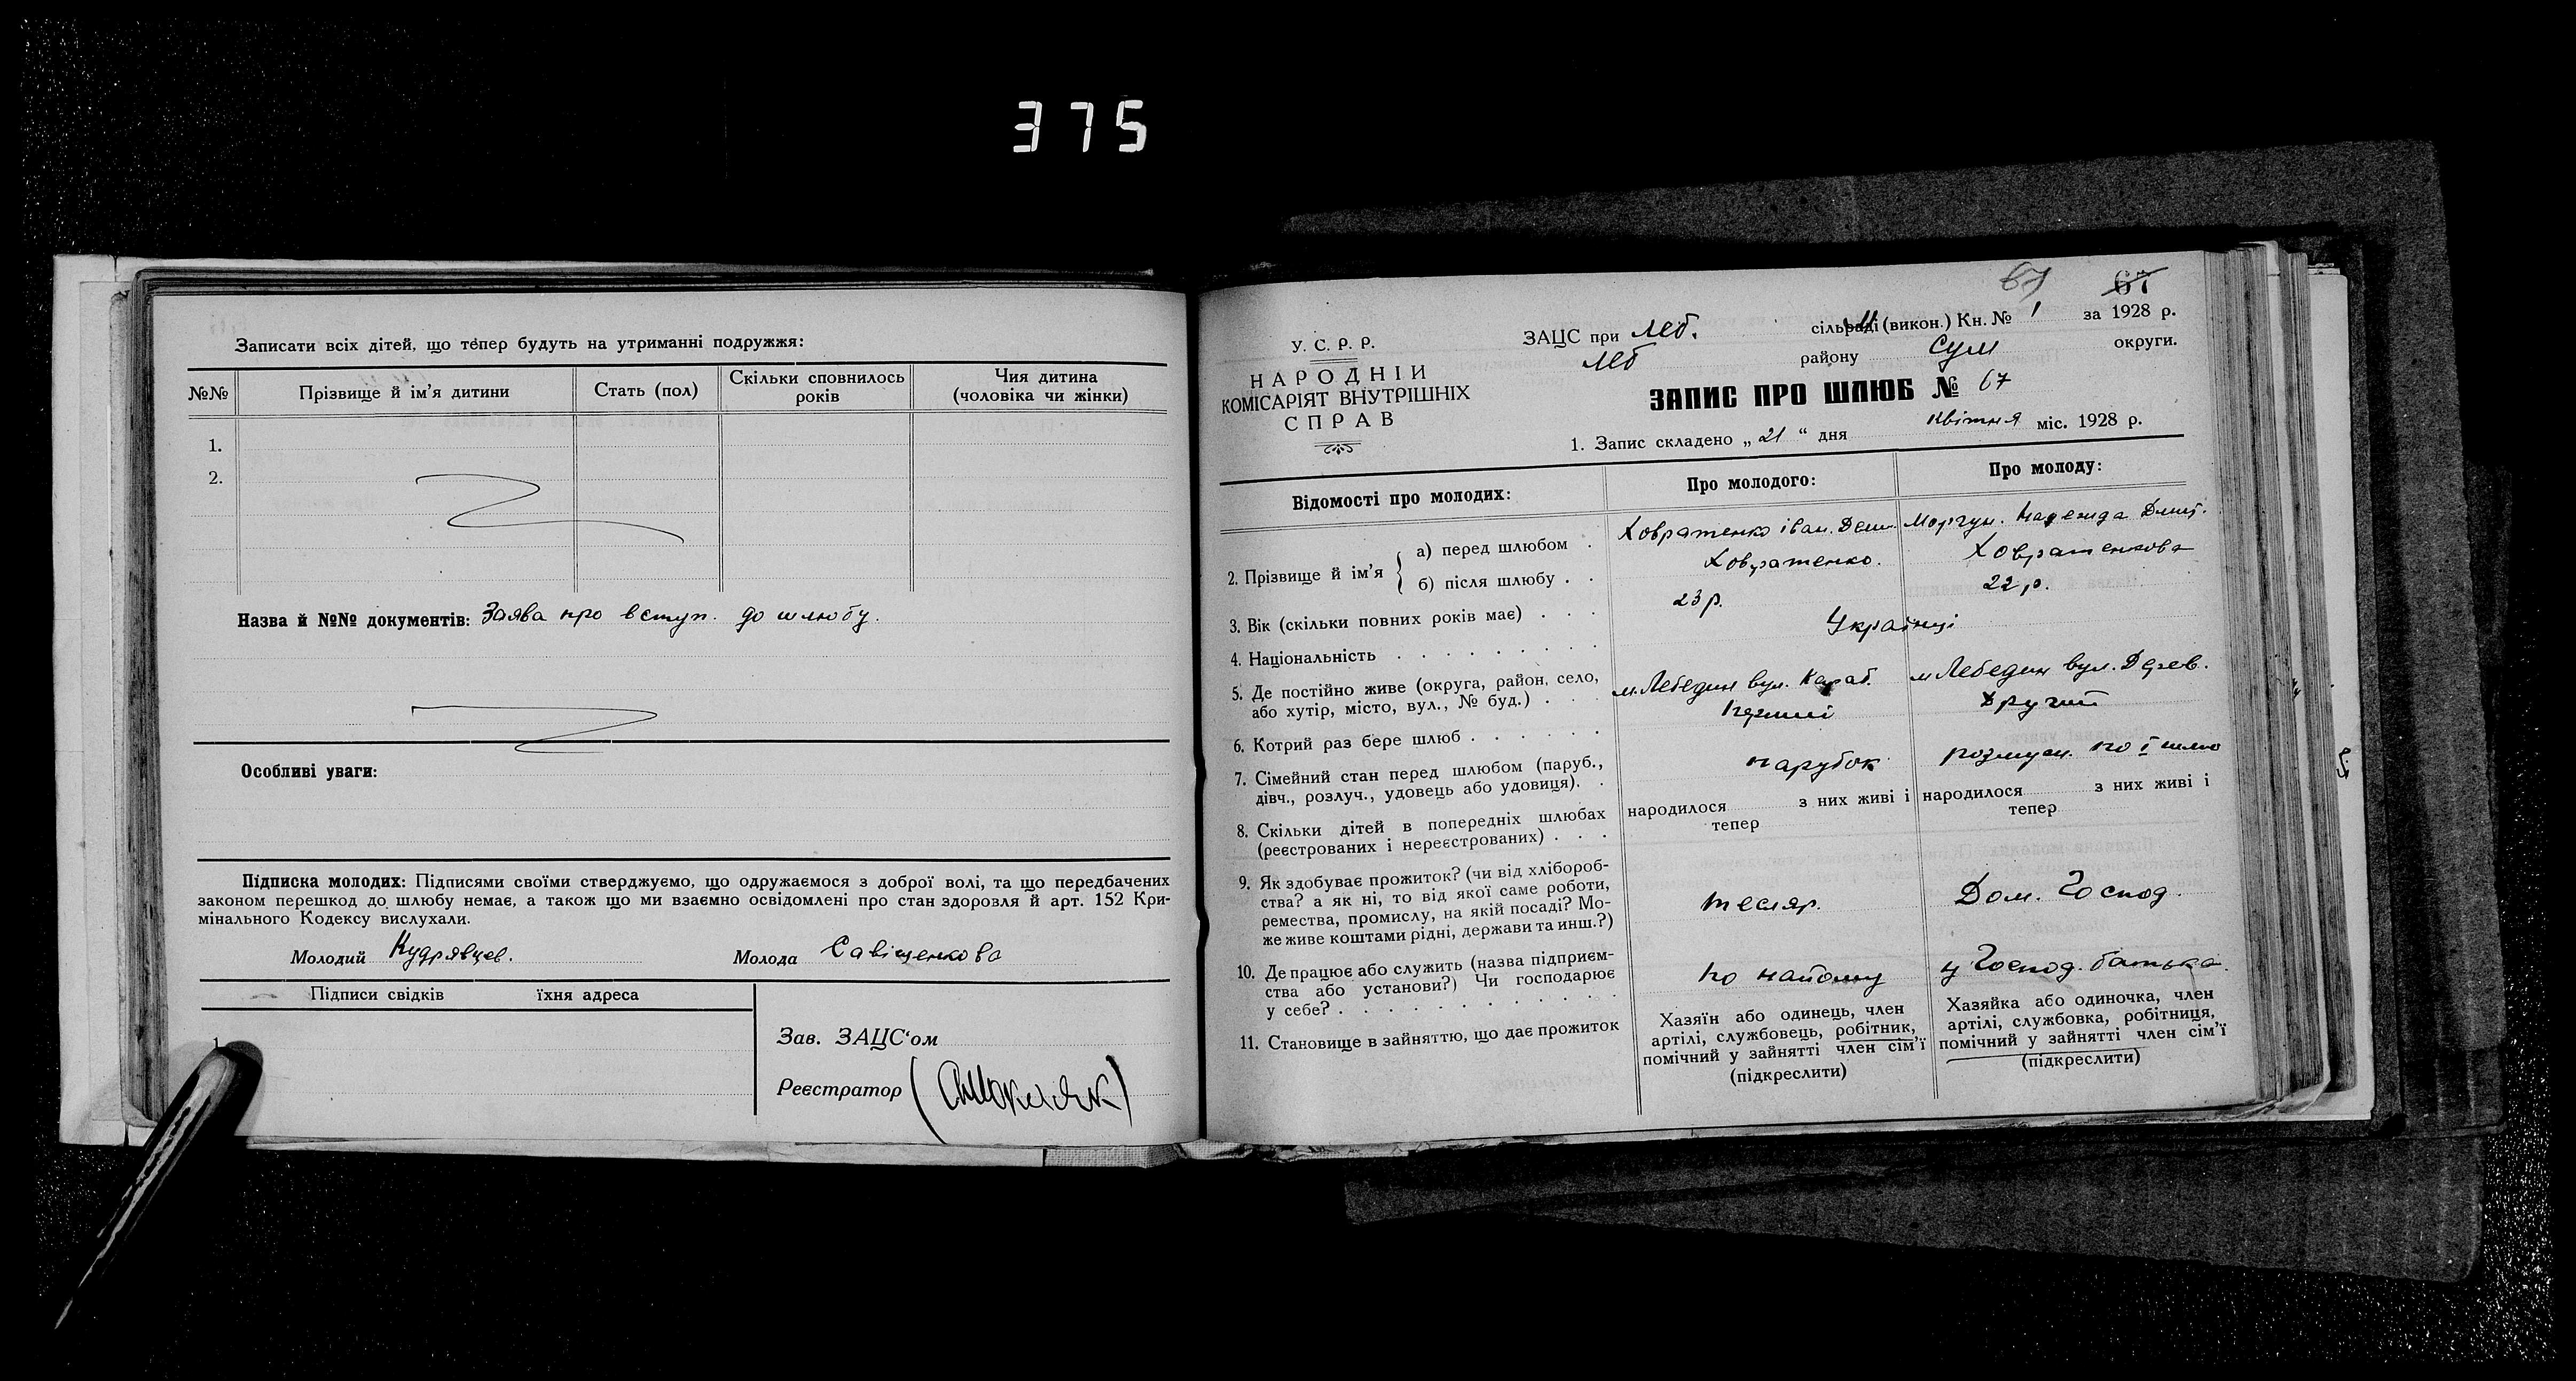 375
Записати всіх дітей, що тепер будуть на утриманні подружжя:
№№ Прізвище й ім'я дитини Стать (пол) Скільки сповнилось років Чия дитина (чоловіка чи жінки)
1.
2.
Назва й №№ документів: Заява про вступ. до шлюбу.
Особливі уваги:
Підписка молодих: Підписями своїми стверджуємо, що одружаємося з доброї волі, та що передбачених
законом перешкод до шлюбу немає, а також що ми взаємно освідомлені про стан здоровля й арт. 152 Кри-
мінального Кодексу вислухали.
Молодий Кудрявцев. Молода Савіщенкова
Підписи свідків їхня адреса
1
Зав. ЗАЦС'ом
Реєстратор
67 67
У. С. Р. Р.
НАРОДНІЙ
КОМІСАРІЯТ ВНУТРІШНІХ
СПРАВ
ЗАЦС при Леб. сільраді (викон.) Кн. № 1 за 1928 р.
Леб району Сум округи.
ЗАПИС ПРО ШЛЮБ № 67
1. Запис складено „21“ дня квітня міс. 1928 р.
Відомості про молодих: Про молодого: Про молоду:
2. Прізвище й ім'я
а) перед шлюбом . Ховратенко Іван. Моргун. Надежда Дмит.
б) після шлюбу . . Ховратенко. Ховратенкова
3. Вік (скільки повних років має) . . . 23 р. 22 р.
4. Національність . . . . . . . . . Українці
5. Де постійно живе (округа, район, село,
або хутір, місто, вул., № буд.) . . .
м. Лебедин вул.
м Лебедин вул.
6. Котрий раз бере шлюб . . . . . . перший другий
7. Сімейний стан перед шлюбом (паруб.,
дівч., розлуч., удовець або удовиця). .
парубок
по I шлю
8. Скільки дітей в попередніх шлюбах
(реєстрованих і нереєстрованих) . . .
народилося з них живі і
тепер
народилося з них живі і
тепер
9. Як здобуває прожиток? (чи від хлібороб-
ства? а як ні, то від якої саме роботи,
ремества, промислу, на якій посаді? Мо-
же живе коштами рідні, держави та инш.?)
тесляр.
Дом. Господ.
10. Де працює або служить (назва підприєм-
ства або установи?) Чи господарює
у себе? . . . . . . . . . . .
по найому
у Господ. батька.
11. Становище в зайняттю, що дає прожиток
Хазяїн або одинець, член
артілі, службовець, робітник,
помічний у зайнятті член сім'ї
(підкреслити)
Хазяйка або одиночка, член
артілі, службовка, робітниця,
помічний у зайнятті член сім'ї
(підкреслити)